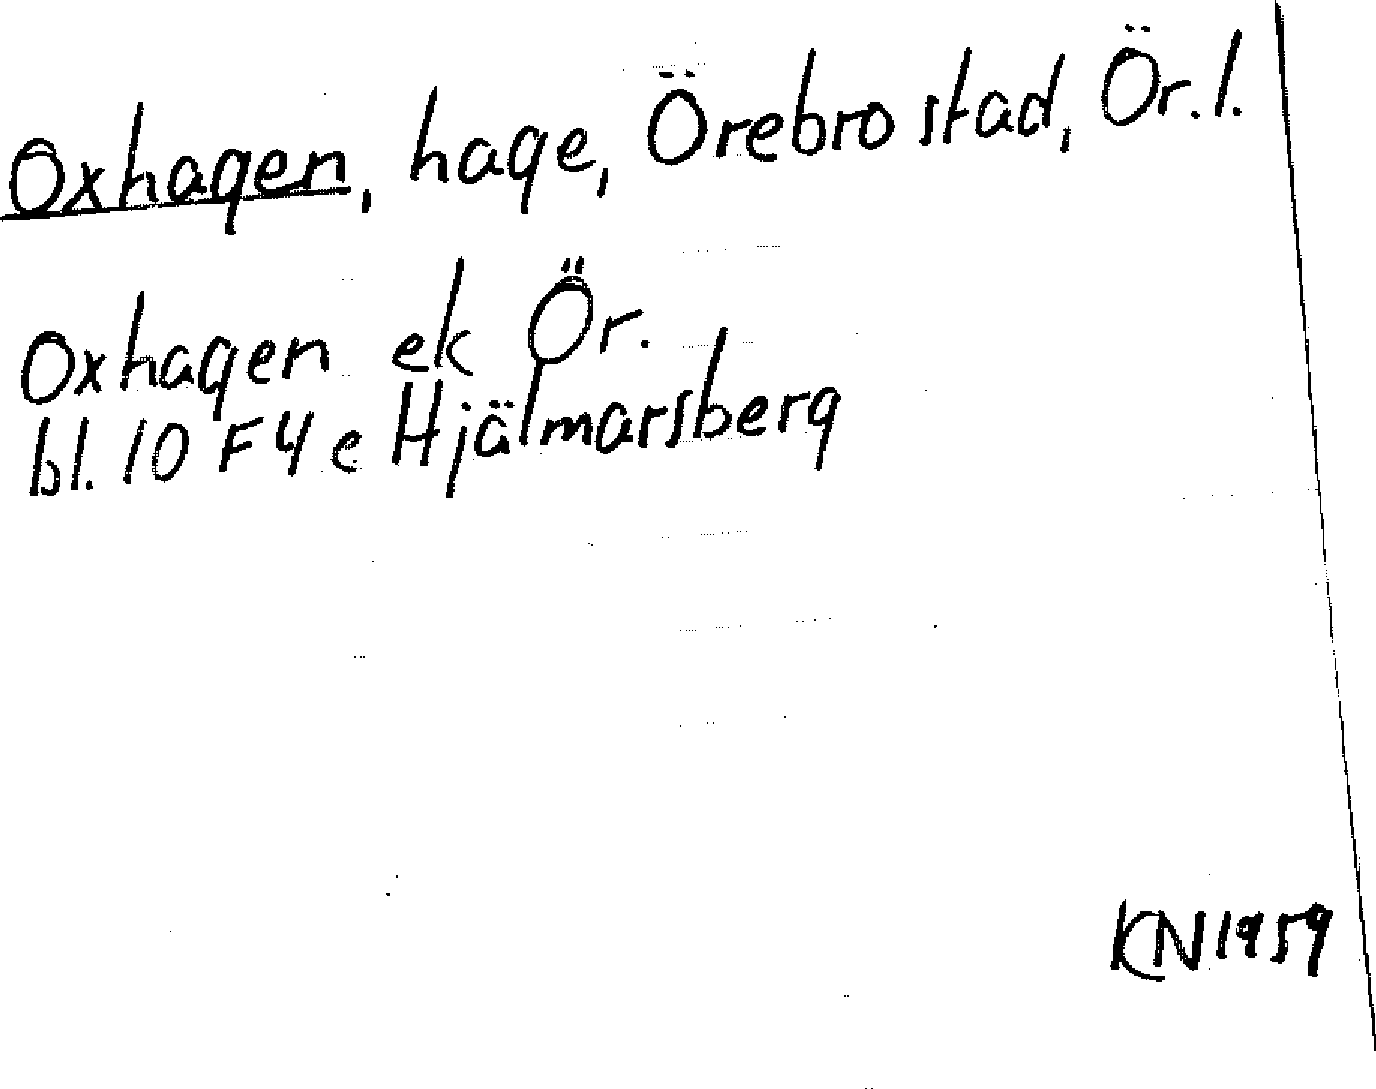 Oxhagen, hage, Örebro stad, Ör. l.
Oxhagen ek Ör.
bl. 10 F 4 e Hjälmarsberg
KN 1959